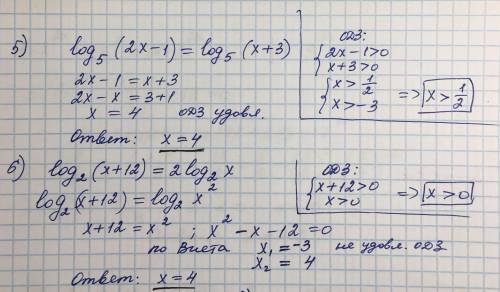 5) log₅(2x-1) = log₅(x+3)
2x-1 = x+3
2x-x = 3+1
x = 4 ОДЗ удовл.
Ответ: x=4
ОДЗ:
{2x-1>0
x+3>0
{x>1/2
x>-3 => x>1/2
6) log₂(x+12) = 2log₂x
log₂(x+12) = log₂x²
x+12 = x² ; x²-x-12=0
по Виета x₁=-3 не удовл. ОДЗ
x₂ = 4
Ответ: x=4
ОДЗ:
{x+12>0
x>0 => x>0